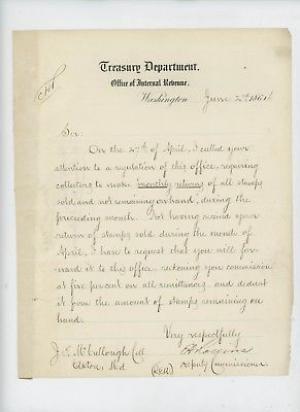 Treasury Department.
Office of Internal Revenue.
Washington June 2nd 1864
Sir:
On the 27th of April, I called your
attention to a regulation of this office, requiring
collectors to make monthly returns of all stamps
sold and not remaining on hand, during the
preceding month. Not having received your
return of stamps sold during the month of
April, I have to request that you will for-
ward it to this office, reckoning your commission
at five per cent on all remittances, and deduct
it from the amount of stamps remaining on
hand.
Very respectfully
J. T. McCullough Coll
Deputy Commissioner.
Elkton, Md